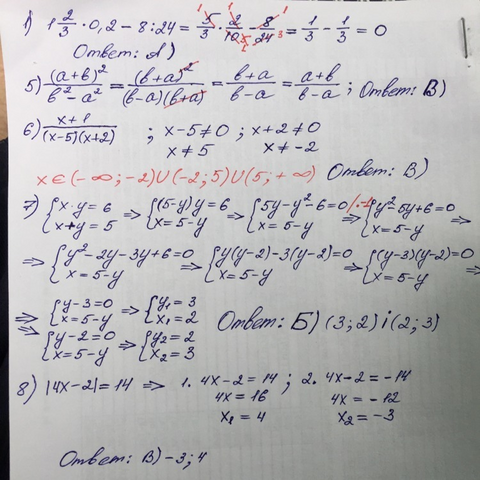 1) 1 2/3 · 0,2 - 8 : 24 = 5/3 · 2/10 - 8/24 = 1/3 - 1/3 = 0
Ответ: А)
5) (a+b)²/(b²-a²) = (b+a)²/((b-a)(b+a)) = (b+a)/(b-a) = (a+b)/(b-a) ; Ответ: В)
6) (x+1)/((x-5)(x+2)) ; x-5≠0 ; x+2≠0
x≠5 x≠-2
x∈(-∞;-2)U(-2;5)U(5;+∞) Ответ: В)
7) {x·y=6 => {(5-y)y=6 => {5y-y²-6=0 |·(-1) => {y²-5y+6=0 =>
{x+y=5 {x=5-y {x=5-y {x=5-y
=> {y²-2y-3y+6=0 => {y(y-2)-3(y-2)=0 => {(y-3)(y-2)=0 =>
{x=5-y {x=5-y {x=5-y
=> {y-3=0 => {y₁=3
{x=5-y {x₁=2 Ответ: Б) (3;2) i (2;3)
=> {y-2=0 => {y₂=2
{x=5-y {x₂=3
8) |4x-2|=14 => 1. 4x-2=14 ; 2. 4x-2=-14
4x=16 4x=-12
x₁=4 x₂=-3
Ответ: В) -3;4